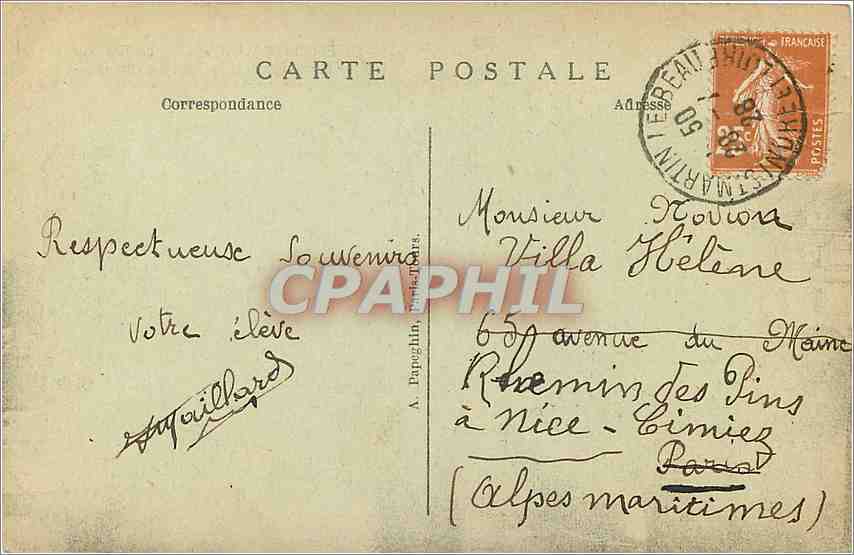 CARTE POSTALE
Correspondance
Adresse
FRANÇAISE
POSTES
25c
ST MARTIN LE BEAU
28
50
Respectueux Souvenirs
votre élève
Maillard
A. Papeghin, Paris-Tours.
Monsieur Novion
Villa Hélène
65 avenue du Maine
Chemin des Pins
à Nice - Cimiez
Paris
(Alpes maritimes)
CPAPHIL